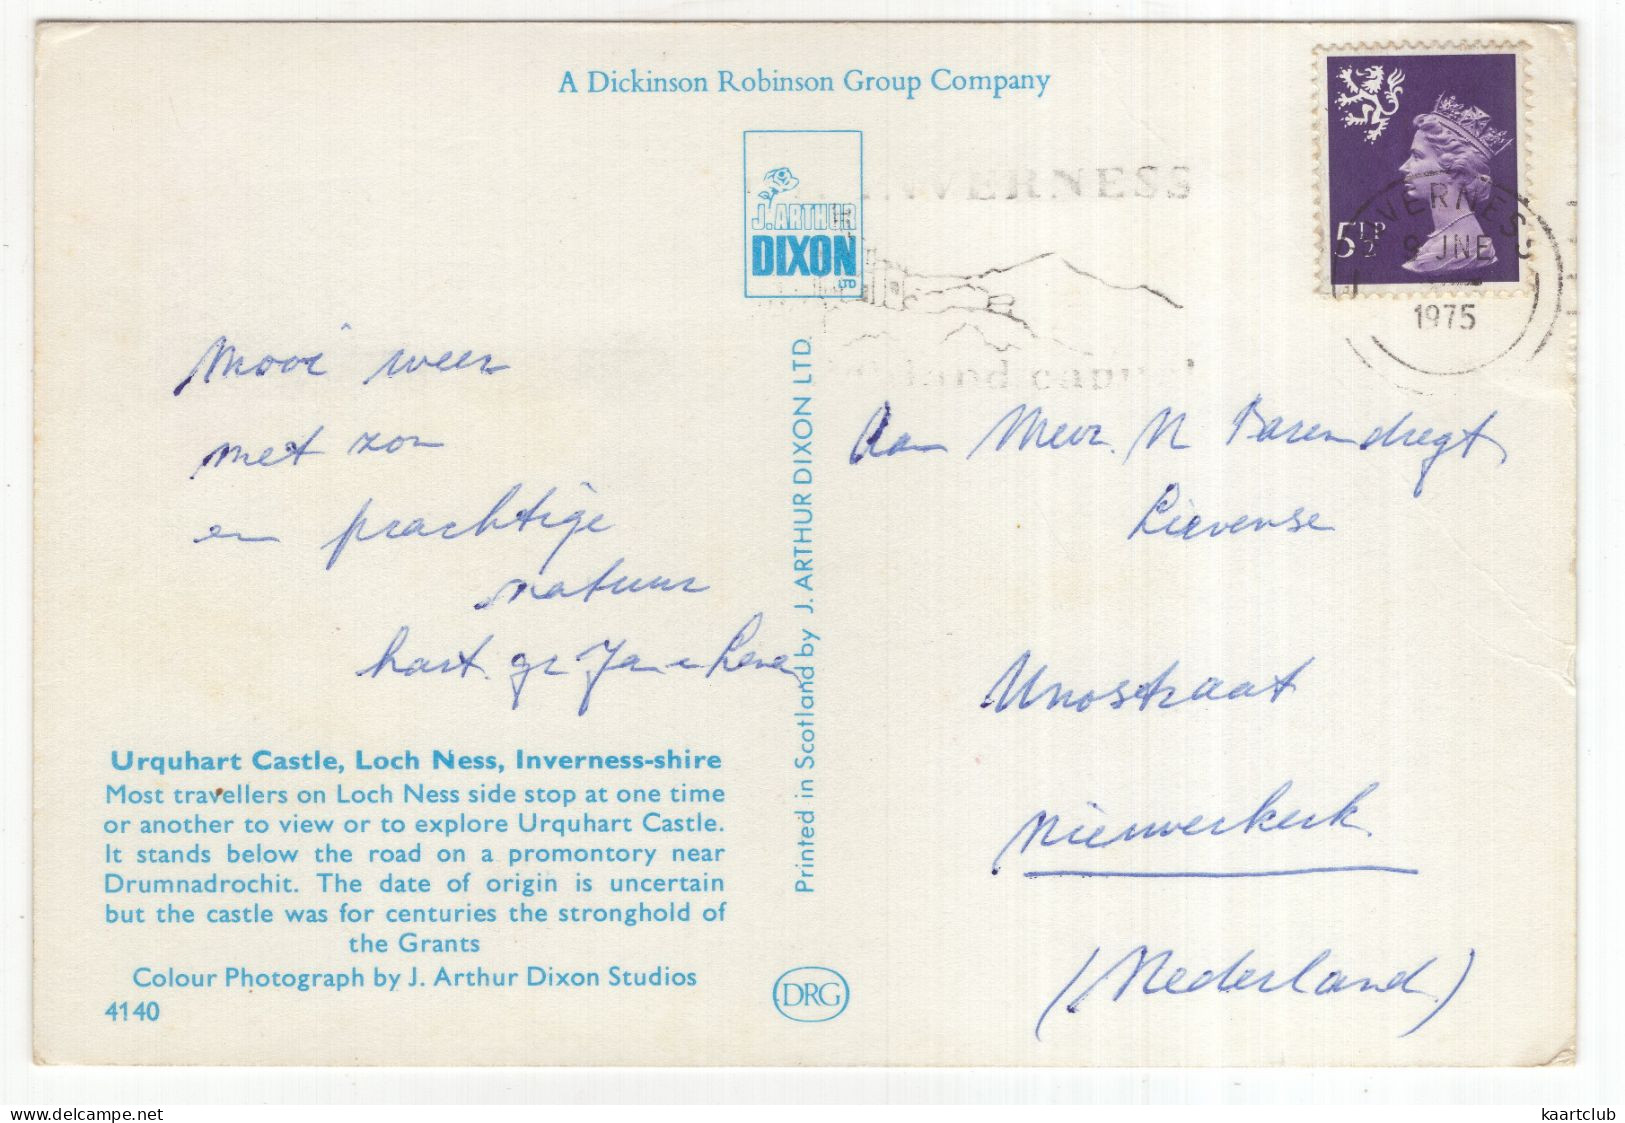 A Dickinson Robinson Group Company
J. ARTHUR
DIXON
LTD
INVERNESS
5½P
INVERNESS
9 JNE
1975
Mooi weer
met zon
en prachtige
natuur
hart. gr Jan
Urquhart Castle, Loch Ness, Inverness-shire
Most travellers on Loch Ness side stop at one time
or another to view or to explore Urquhart Castle.
It stands below the road on a promontory near
Drumnadrochit. The date of origin is uncertain
but the castle was for centuries the stronghold of
the Grants
Colour Photograph by J. Arthur Dixon Studios
4140
Printed in Scotland by J. ARTHUR DIXON LTD.
DRG
Aan Mevr. N Barendregt
Lievense
straat
Nieuwerkerk
(Nederland)
www.delcampe.net
kaartclub